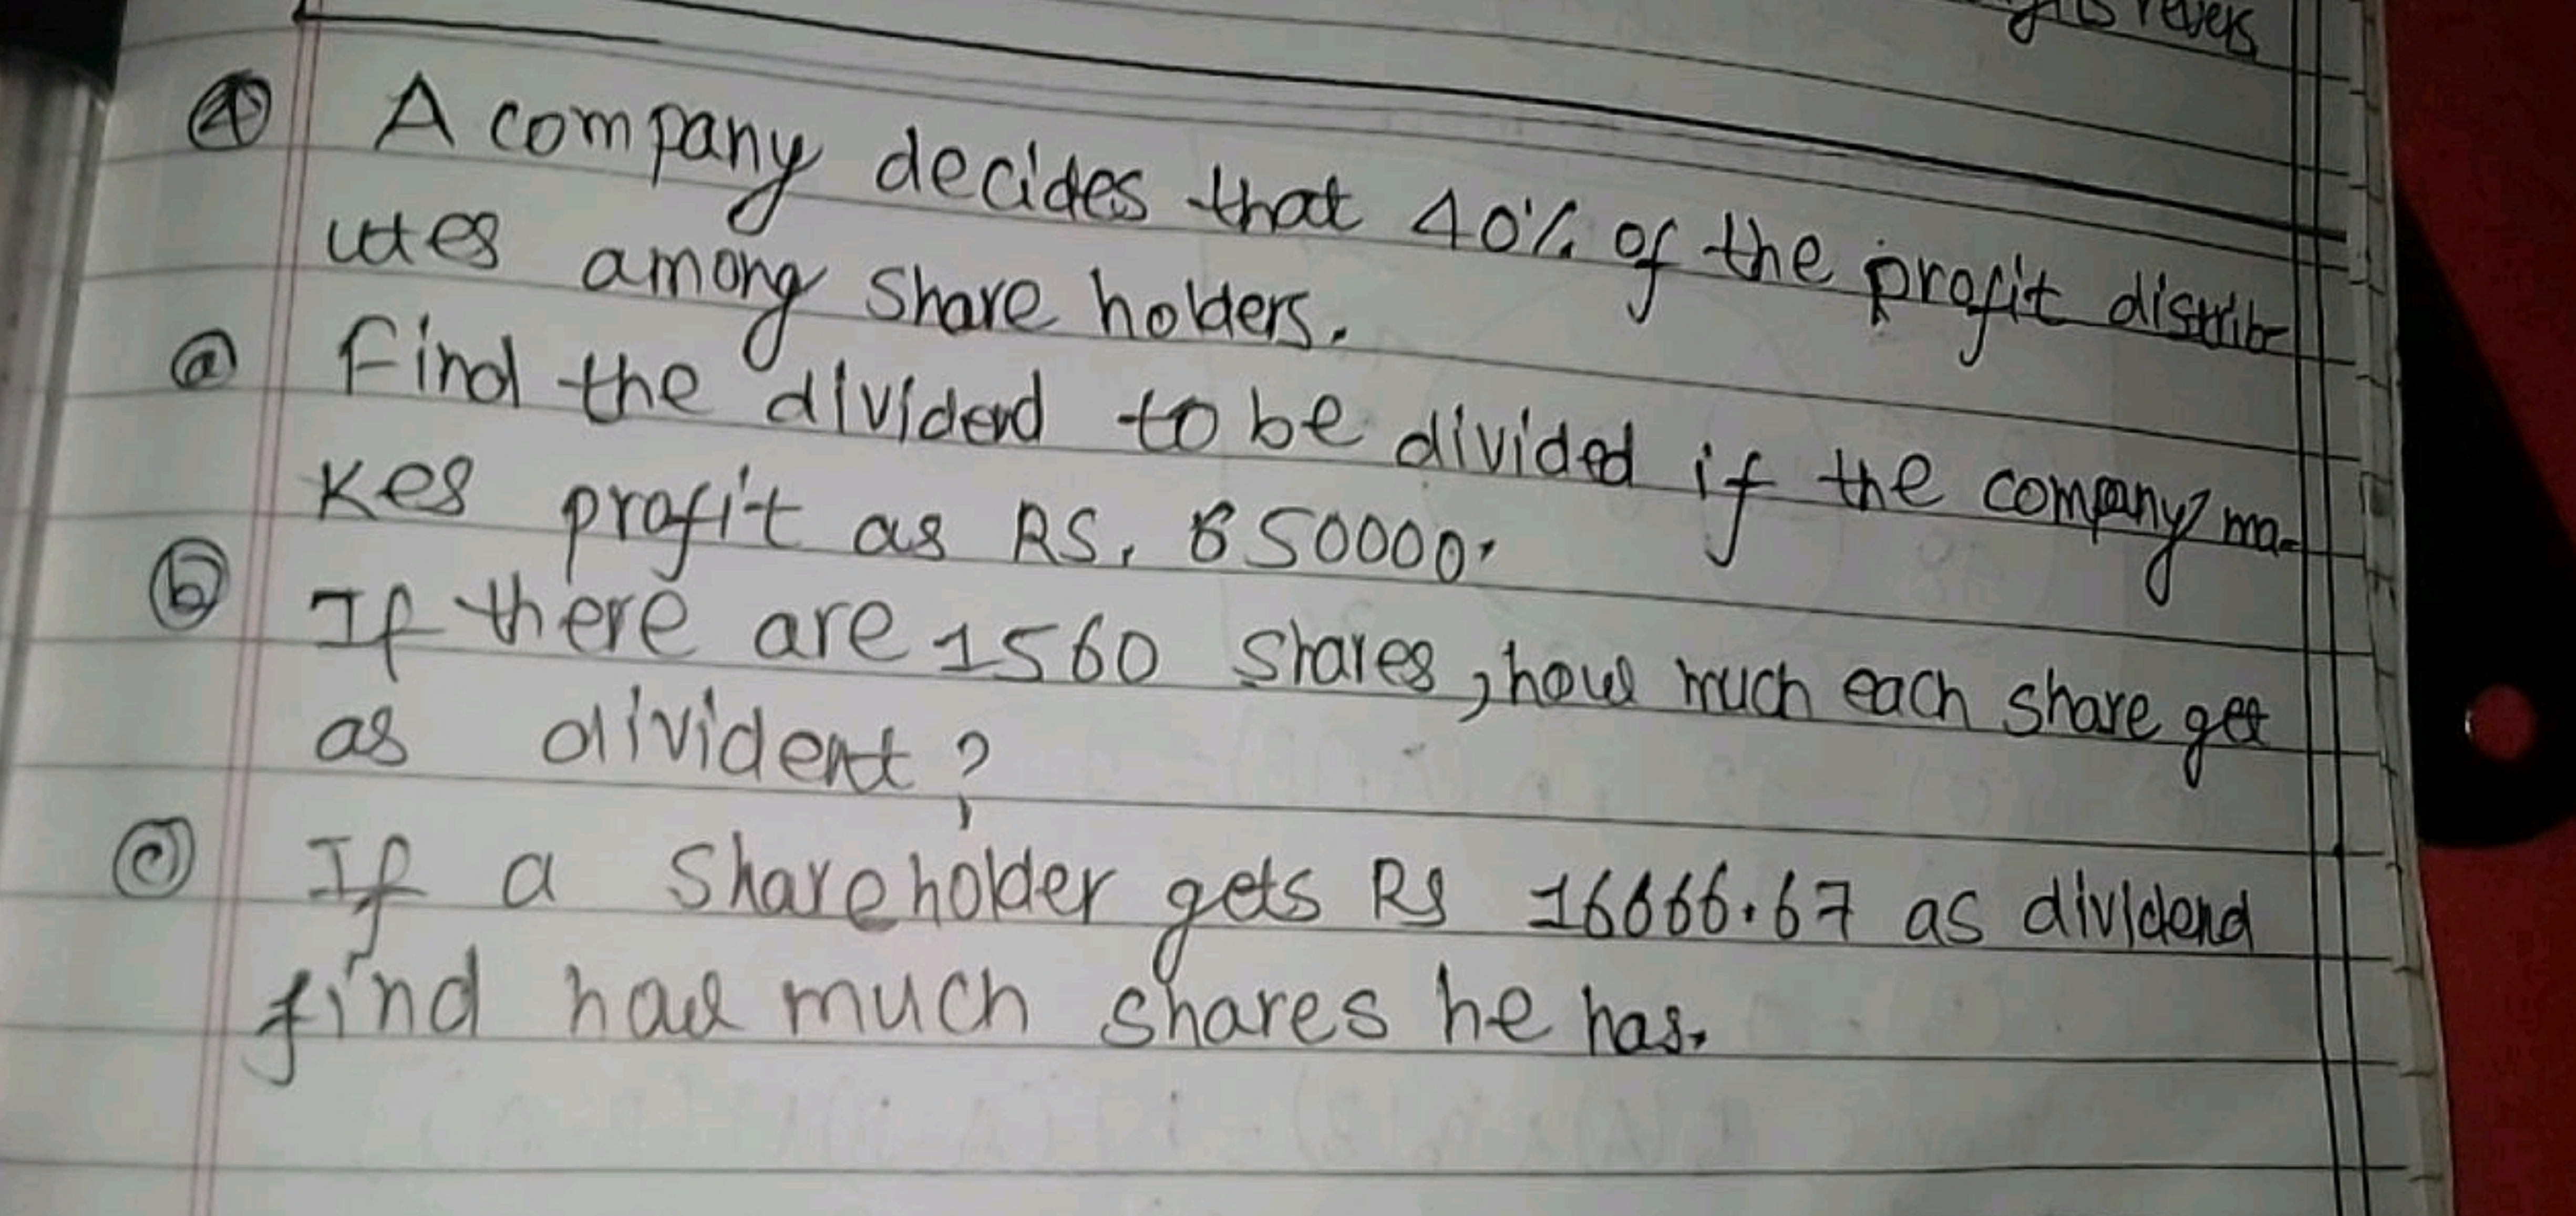 ④ A company decides that 40% of the profit distrib
utes among share holders.
ⓐ find the dividend to be divided if the company ma-
kes profit as RS. 650000.
ⓑ If there are 1560 shares, how much each share get
as divident?
ⓒ If a shareholder gets Rs 16666.67 as dividend
find how much shares he has.